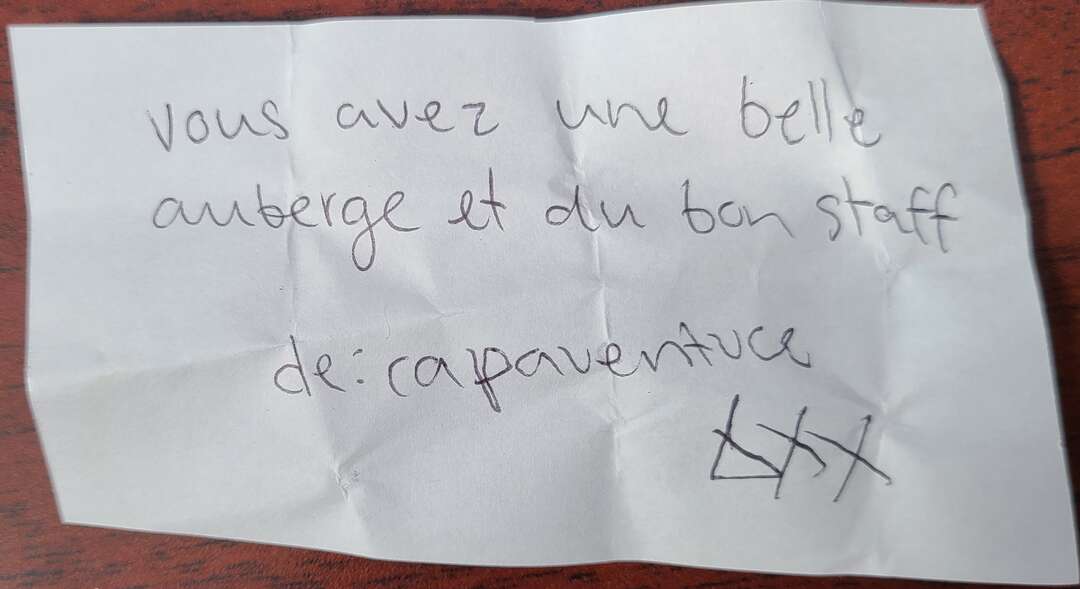 vous avez une belle
auberge et du bon staff
de: capaventure
XXX